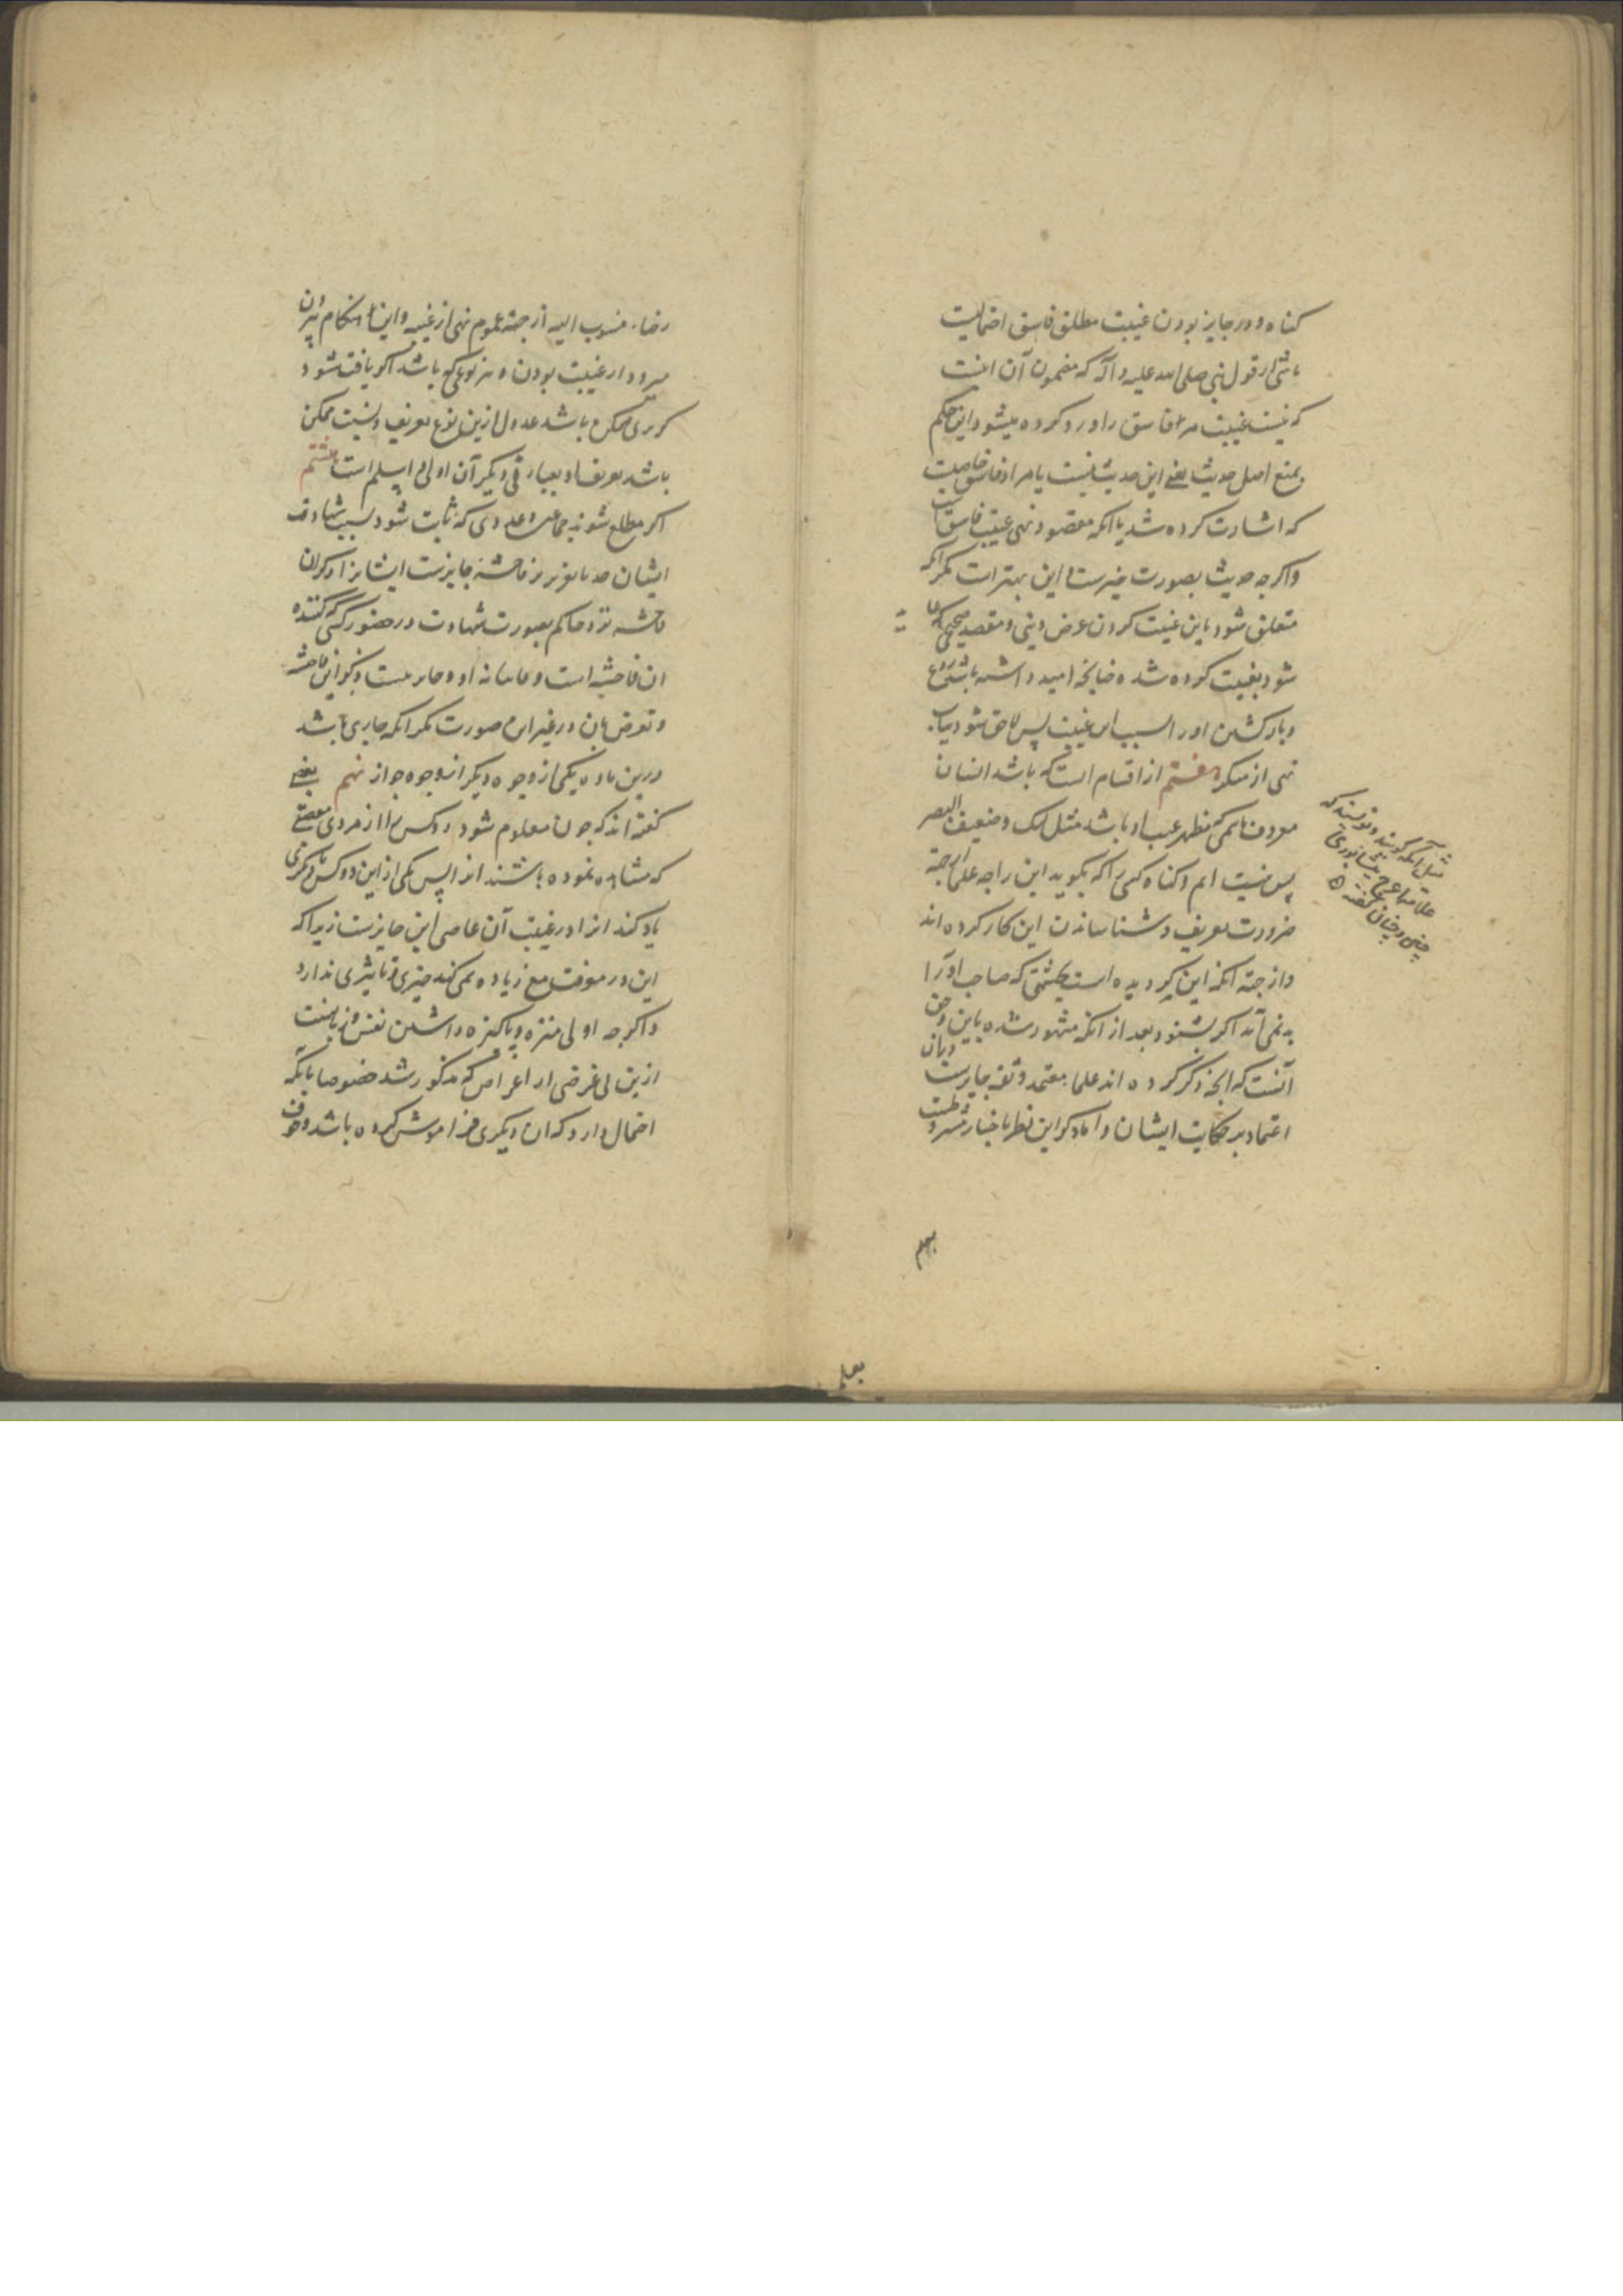 کناه و در جایز بودن غیبت مطلق فاسق احتمالیست
ناشی از قول نبی صلی الله علیه و آله که مضمون آن اینست
که نیست غیبت مر فاسق را و رد کرده میشود این حکم
بمنع اصل حدیث یعنی این حدیث نیست یا مراد فاسق خاصیست
که اشارت کرده شد یا انکه مقصود نهی غیبت فاسق است
واکرچه حدیث بصورت خبرست و این بهتر است مکر انکه
متعلق شود باین غیبت کردن غرض دینی و مقصد صحیحی که
شود بغیبت کرده شده چنانچه امید داشته باشد
و باز کشتن او را بسبب این غیبت پس لاحق شود بباب
نهی از منکر هفتم از اقسام انست که باشد انسان
معروف باسمی که مظهر عیب او باشد مثل لنک و ضعیف البصر
پس نیست اثم و کناه کسی را که بکوید این را چه علما از جهة
ضرورت تعریف و شناساندن این کار کرده اند
و از جهة انکه این کردیده است بحیثیتی که صاحب او آنرا
بد نمی آید اکر بشنود بعد از انکه مشهور شده باین و حق
آنست که انچه ذکر کرده اند علماء معتمد و ثقه جایزست
اعتماد بر حکایت ایشان و اما ذکر این نظر باخبار مشروطست
مثل آنکه کویند و نویسند که
علامه اعرج نیشابوری
چنین و چنان کفته
رضاء منسوب الیه از جهة عموم نهی از غیبه و این هنکام بیرون
میرود از غیبت بودن و بهر نوعی که باشد اکر یافت شود
کریزی ممکن باشد عدول ازین نوع تعریف و نسبت ممکن
باشد تعریف او بعبارتی دیکر آن اولی و اسلم است هشتم
اکر مطلع شوند جماعتی و عددی که ثابت شود بسبب شهادت
ایشان حد یا تعزیر بر فاحشه جایزست ایشانرا ذکر ان
فاحشه نزد حاکم بصورت شهادت در حضور کسی که کننده
ان فاحشه است و غایبانه او و جایز نیست ذکر این فاحشه
و تعرض بان در غیر این صورت مکر انکه جاری باشد
درین ماده یکی از وجوه دیکر از وجوه جواز نهم بعضی
کفته اند که چون معلوم شود دو کس را از مردی معصیتی
که مشاهده نموده باشند انرا پس یکی از این دو کس با دیکری
یاد کند انرا در غیبت آن عاصی این جایزست زیرا که
این در معرفت سامع زیاده نمی کند چیزی و تاثیری ندارد
و اکرچه اولی منزه و پاکیزه داشتن نفس و زبانست
ازین بی غرضی از اغراض که مذکور شد خصوصا بانکه
احتمال دارد که ان دیکری فراموش کرده باشد و خوف